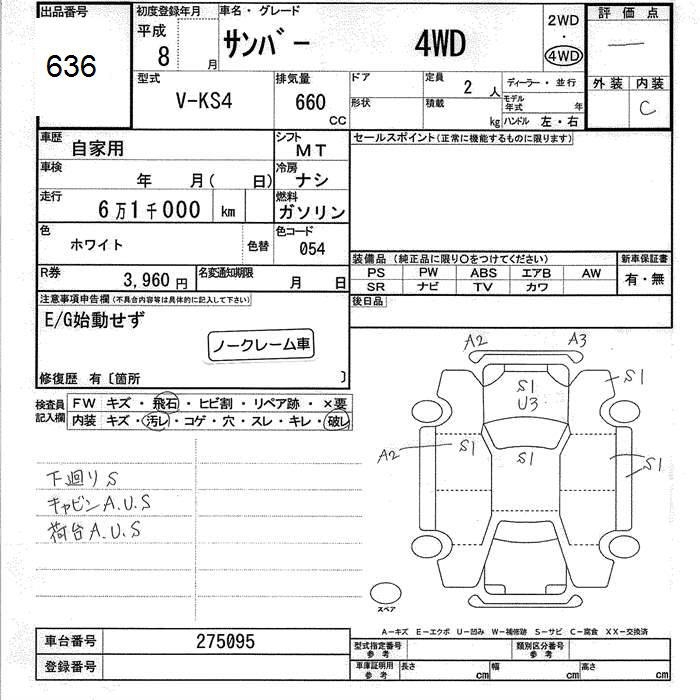 出品番号
636
初度登録年月
平成
8 月
車名・グレード
サンバー 4WD
2WD
・
4WD
評価点
—
外装 内装
C
型式
V-KS4
排気量
660
CC
ドア
形状
定員
2 人
積載
kg
ディーラー・並行
モデル
年式 年
ハンドル 左・右
車歴
自家用
シフト
MT
車検
年 月( 日)
冷房
ナシ
走行
6万1千000 km
燃料
ガソリン
色
ホワイト
色替
色コード
054
R券
3,960円
名変通知期限
月 日
セールスポイント(正常に機能するものに限ります)
装備品(純正品に限り○をつけてください)
新車保証書
PS PW ABS エアB AW
SR ナビ TV カワ
有・無
後日品
注意事項申告欄(不具合内容等は具体的に記入して下さい)
E/G始動せず
ノークレーム車
修復歴 有〔箇所 〕
検査員
記入欄
FW キズ・飛石・ヒビ割・リペア跡・×要
内装 キズ・汚レ・コゲ・穴・スレ・キレ・破レ
下廻りS
キャビンA.U.S
荷台A.U.S
A2 A3
S1
U3
S1
A2
S1
S1
S1
スペア
A-キズ E-エクボ U-凹み W-補修跡 S-サビ C-腐食 XX-交換済
車台番号 275095
登録番号
型式指定番号
参考
類別区分番号
参考
車庫証明用
参考
長さ cm
幅 cm
高さ cm